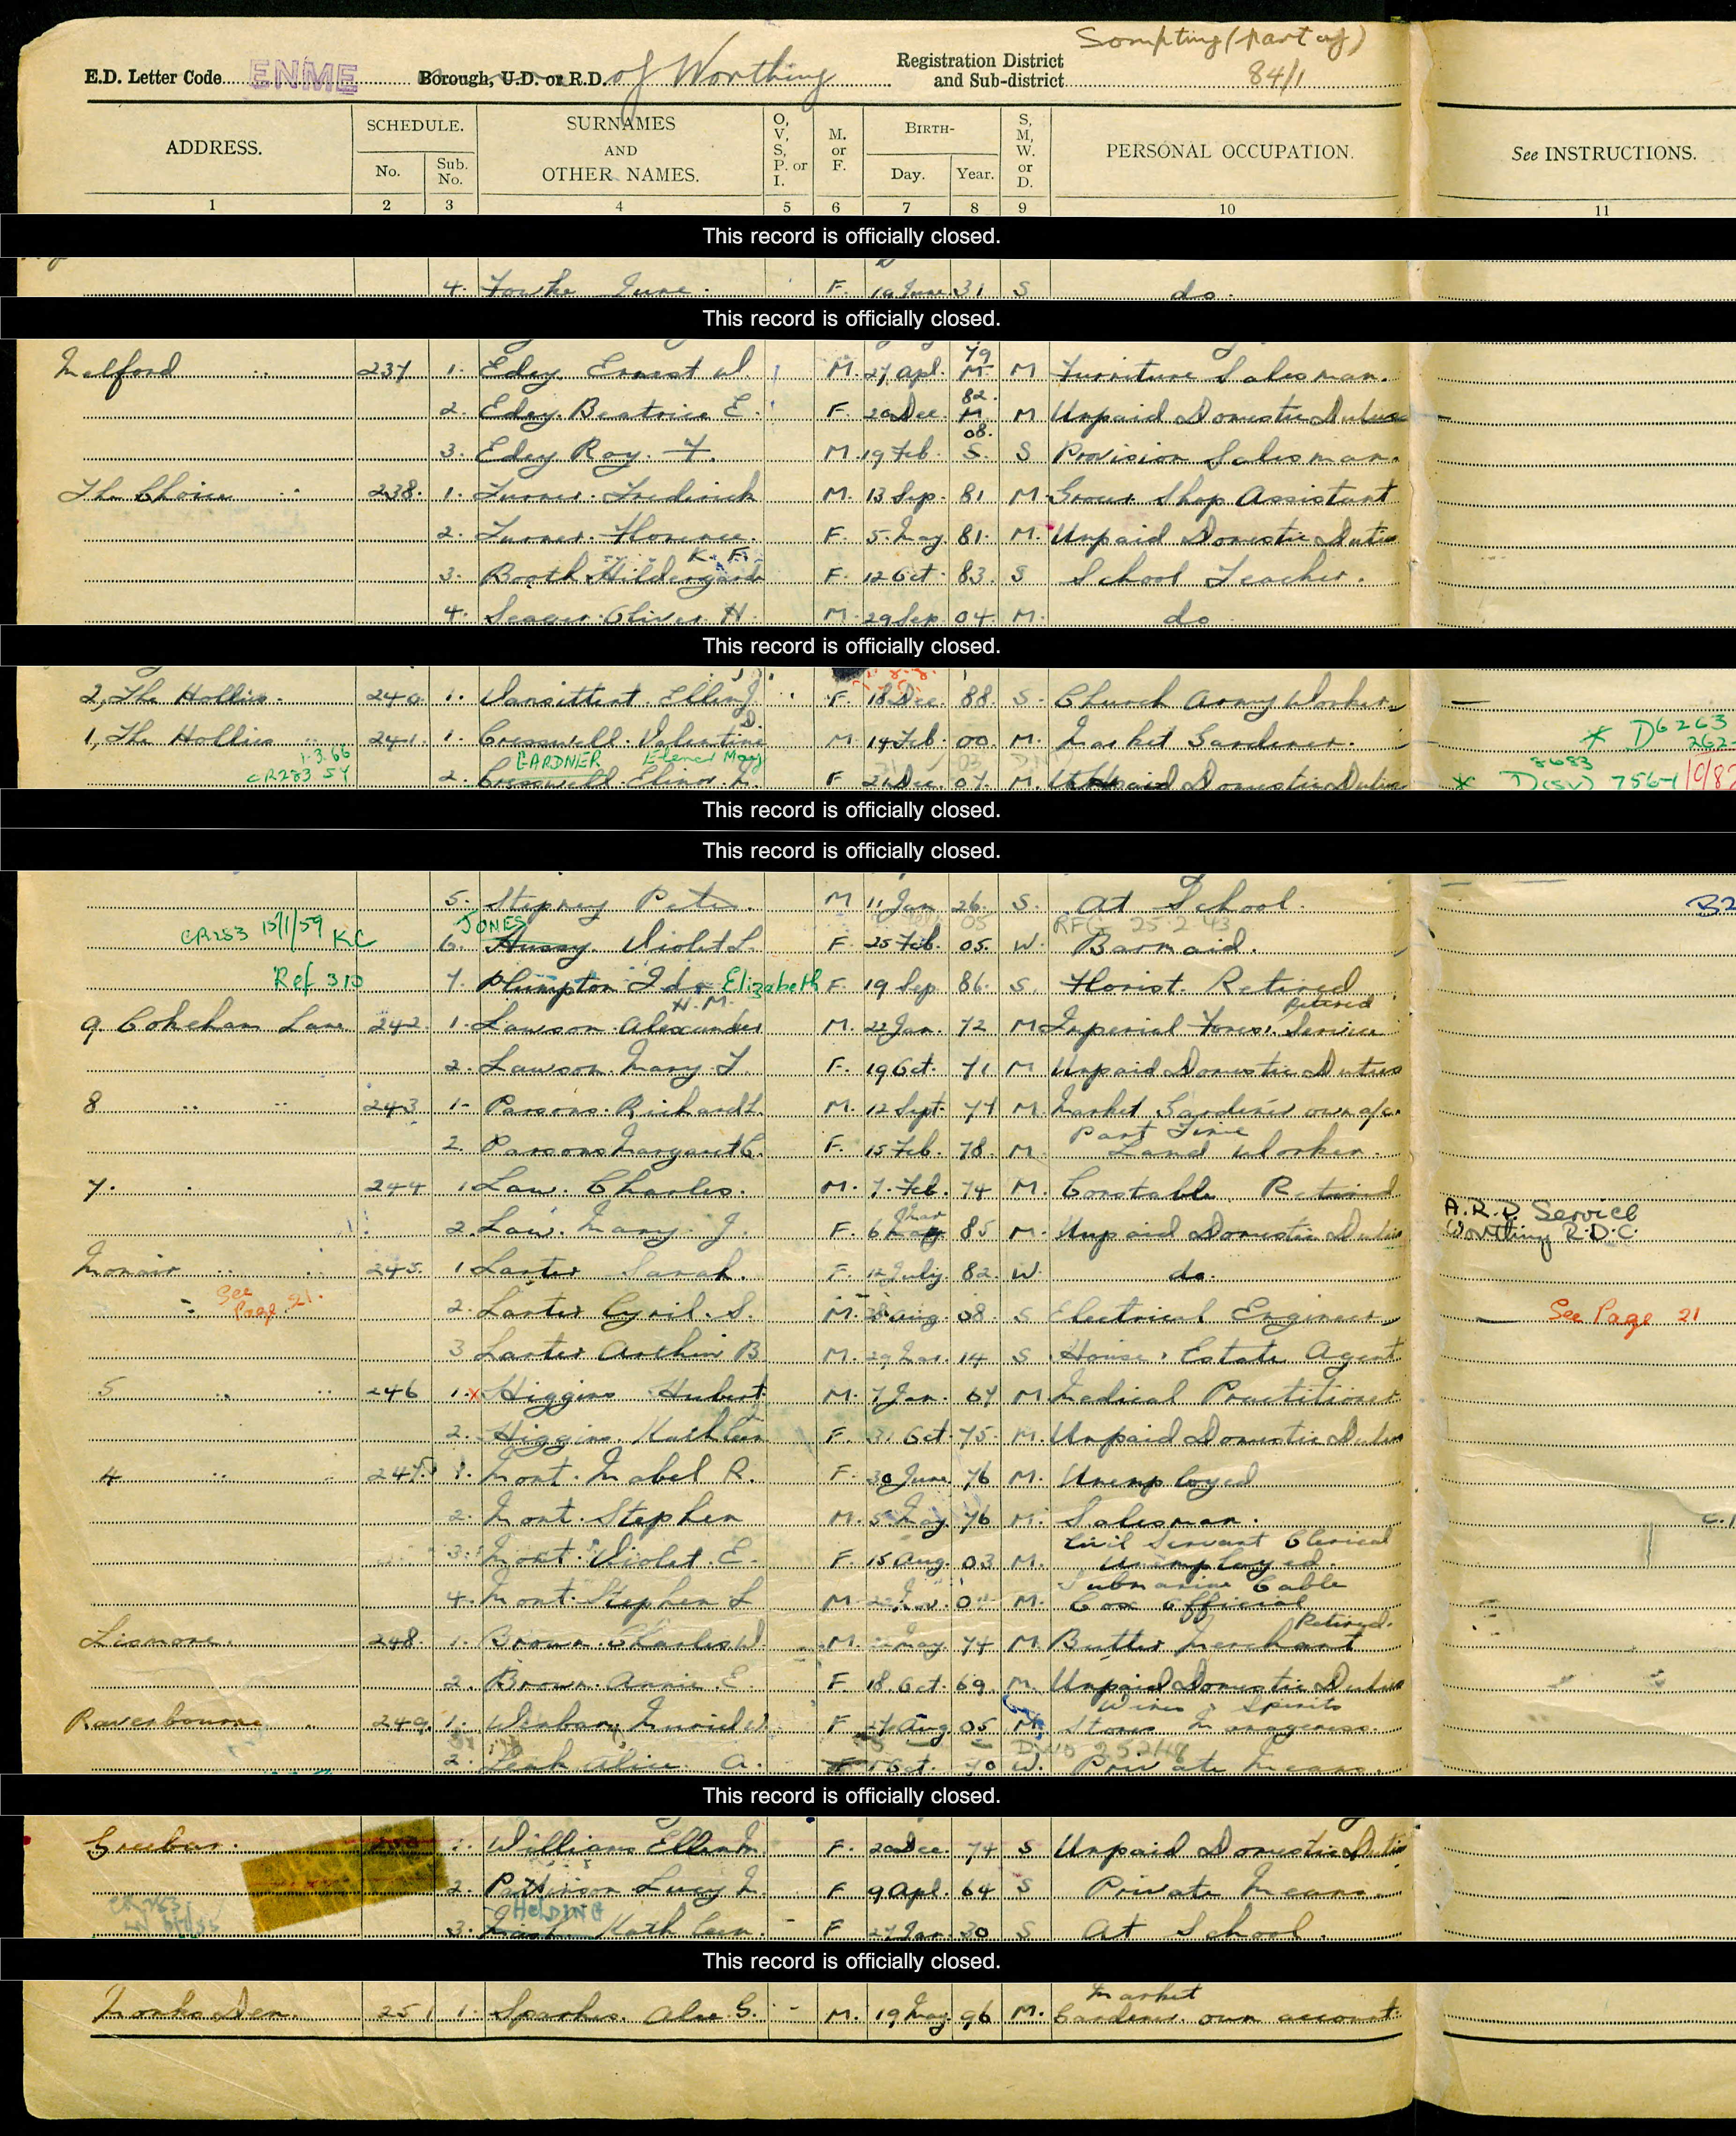 Sompting (part of)
E.D. Letter Code ENME Borough, U.D. or R.D. of Worthing Registration District and Sub-district 84/1
ADDRESS. SCHEDULE. No. Sub. No. SURNAMES AND OTHER NAMES. O, V, S, P. or I. M. or F. BIRTH- Day. Year. S, M, W. or D. PERSONAL OCCUPATION. See INSTRUCTIONS.
1 2 3 4 5 6 7 8 9 10 11
This record is officially closed.
4. Fowke June. F. 19 June 31 S do.
This record is officially closed.
79
Melford 237 1. Edey Ernest W. M. 27 Apl. M M Furniture Salesman.
82.
2. Edey Beatrice E. F. 20 Dec M M Unpaid Domestic Duties
08.
3. Edey Roy. F. M. 19 Feb. S. S Provision Salesman.
The Choice 238. 1. Turner. Frederick M. 13 Sep. 81 M. Grocer Shop Assistant
2. Turner. Florence. F. 5 May 81. M. Unpaid Domestic Duties
K. F.
3. Booth Hildergard F. 12 Oct. 83. S School Teacher.
4. Seager Oliver H. M. 29 Sep 04. M. do
This record is officially closed.
2, The Hollies. 240. 1. Vansittart. Ellen J. F. 18 Dec. 88. S. Church Army Worker
D.
1, The Hollies 241. 1. Cresswell. Valentine M 14 Feb. 00. M. Market Gardener. * D6263
262-
1.3.66 GARDNER Elenor May 8683
CR283 SY 2. Cresswell. Elinor. M. F 21 Dec. 07. M. Unpaid Domestic Duties * D(SV) 756-1
This record is officially closed.
This record is officially closed.
5. Stepney Peter. M 11 Jan 26. S. At School.
JONES 05 RFG 25-2-43
CR283 15/1/59 KC 6. Hussy Violet L F. 25 Feb. 05. W. Barmaid.
Ref 310 7. Plumpton Ida Elizabeth F 19 Sep 86. S. Florist. Retired
H. M. Retired
9. Cokeham Lane 242. 1. Lawson Alexander M. 22 Jan. 72 M Imperial Forest Service
2. Lawson Mary T. F. 19 Oct. 71 M Unpaid Domestic Duties
8 " " 243 1. Parsons. Richard L. M. 12 Sept. 77 M. Market Gardener own a/c.
Part Time
2. Parsons Margaret C. F. 15 Feb. 78. M. Land Worker.
7. " 244 1 Law. Charles. M. 7. Feb. 74 M. Constable Retired
Mar A.R.P. Service
2. Law. Mary. J. F. 6 May 85 M. Unpaid Domestic Duties Worthing R.D.C.
Monair " " 245. 1 Larter Sarah. F. 12 July. 82. W. do.
See Page 21. 2. Larter Cyril. S. M. 28 Aug. 08. S Electrical Engineer See Page 21
3 Larter Arthur B M. 29 Mar. 14 S House & Estate Agent
5 " " 246 1. x Higgins Hubert M. 7 Jan. 67 M Medical Practitioner
2. Higgins. Kathleen F. 3. Oct. 75. M. Unpaid Domestic Duties
4 " 247. 1. Mont. Mabel R. F. 30 June 76 M. Unemployed
2. Mont. Stephen M. 5 May 76 M. Salesman.
Civil Servant Clerical
3. Mont. Violet. E. F. 15 Aug. 03 M. Unemployed.
Submarine Cable
4. Mont. Stephen L M. Nov. M. Official
Retired.
Lismore. 248. 1. Brown Charles W. M. May 74 M. Butter Merchant
2. Brown Annie E. F. 18. Oct. 69. M. Unpaid Domestic Duties
Wines & Spirits
Ravensbourne " 249. 1. Muriel W. F 27 Aug 05 M. Stores Manageress.
2. Leak Alice. A. F Oct. 70 W. Private Means.
This record is officially closed.
Greebar. 1. Williams Ellen M. F. 20 Dec. 74 S Unpaid Domestic Duties
2. Pattinson Lucy M. F 9 Apl. 64 S Private Means.
HOLDING
3. Kathleen. F 27 Jan. 30 S At School.
This record is officially closed.
Market
Monks Den. 251 1. Sparkes. Alec G. M. 19 May 96 M. Gardener own account.